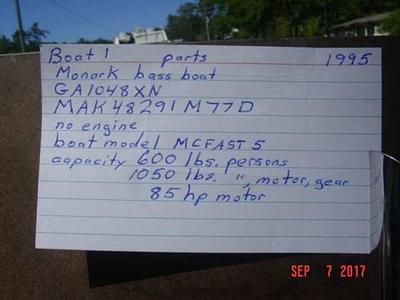 Boat 1 parts 1995
Monark bass boat
GA1048XN
MAK48291M77D
no engine
boat model MCFAST5
capacity 600 lbs. persons
1050 lbs. ", motor, gear
85 hp motor
SEP 7 2017